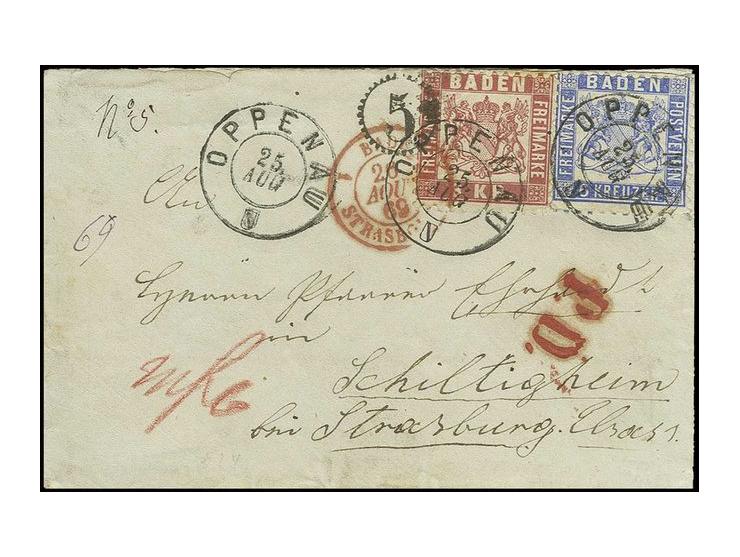 BADEN
FREIMARKE
FREIMARKE
BADEN
FREIMARKE
POSTVEREIN
KREUZER
No 5.
OPPENAU
25
AUG
N
5
OPPENAU
25
AUG
N
OPPENAU
25
AUG
AOUT
69
STRASB
An
69
Herrn Pfarrer Ehrhardt
in
P.D.
Schiltigheim
bei Strasburg. Elsass.